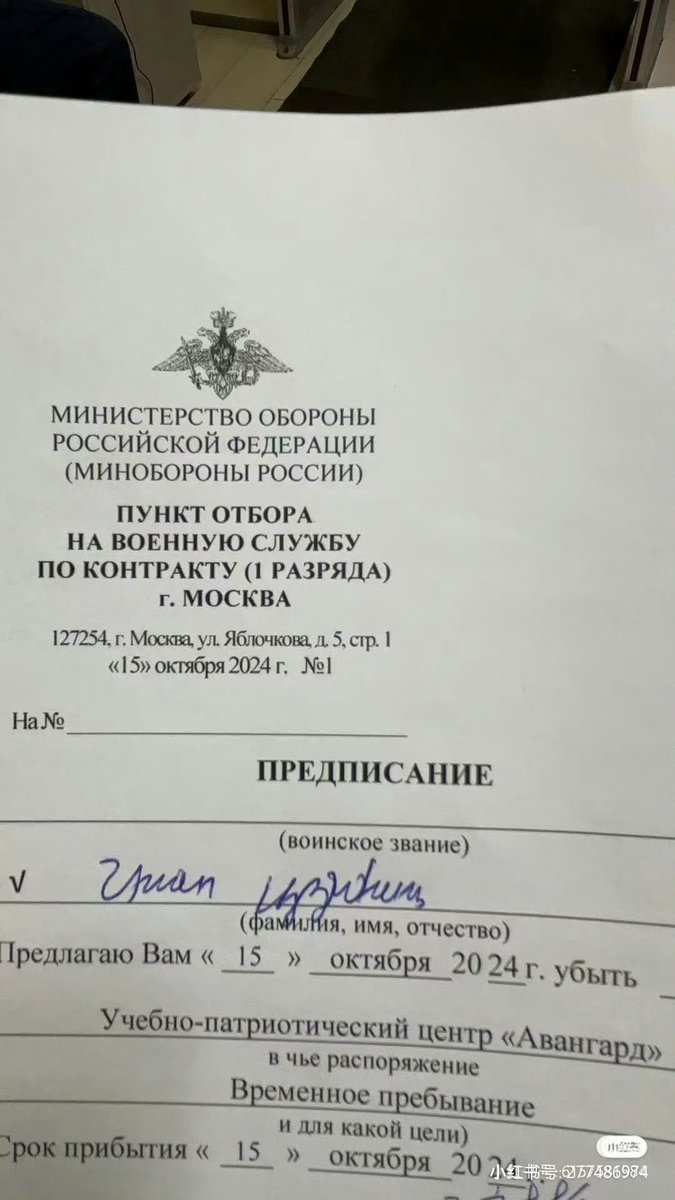 МИНИСТЕРСТВО ОБОРОНЫ
РОССИЙСКОЙ ФЕДЕРАЦИИ
(МИНОБОРОНЫ РОССИИ)
ПУНКТ ОТБОРА
НА ВОЕННУЮ СЛУЖБУ
ПО КОНТРАКТУ (1 РАЗРЯДА)
г. МОСКВА
127254, г. Москва, ул. Яблочкова, д. 5, стр. 1
«15» октября 2024 г. №1
На №
ПРЕДПИСАНИЕ
(воинское звание)
√
(фамилия, имя, отчество)
Предлагаю Вам « 15 » октября 2024 г. убыть
Учебно-патриотический центр «Авангард»
в чье распоряжение
Временное пребывание
и для какой цели)
Срок прибытия « 15 » октября 20
小红书
小红书号: